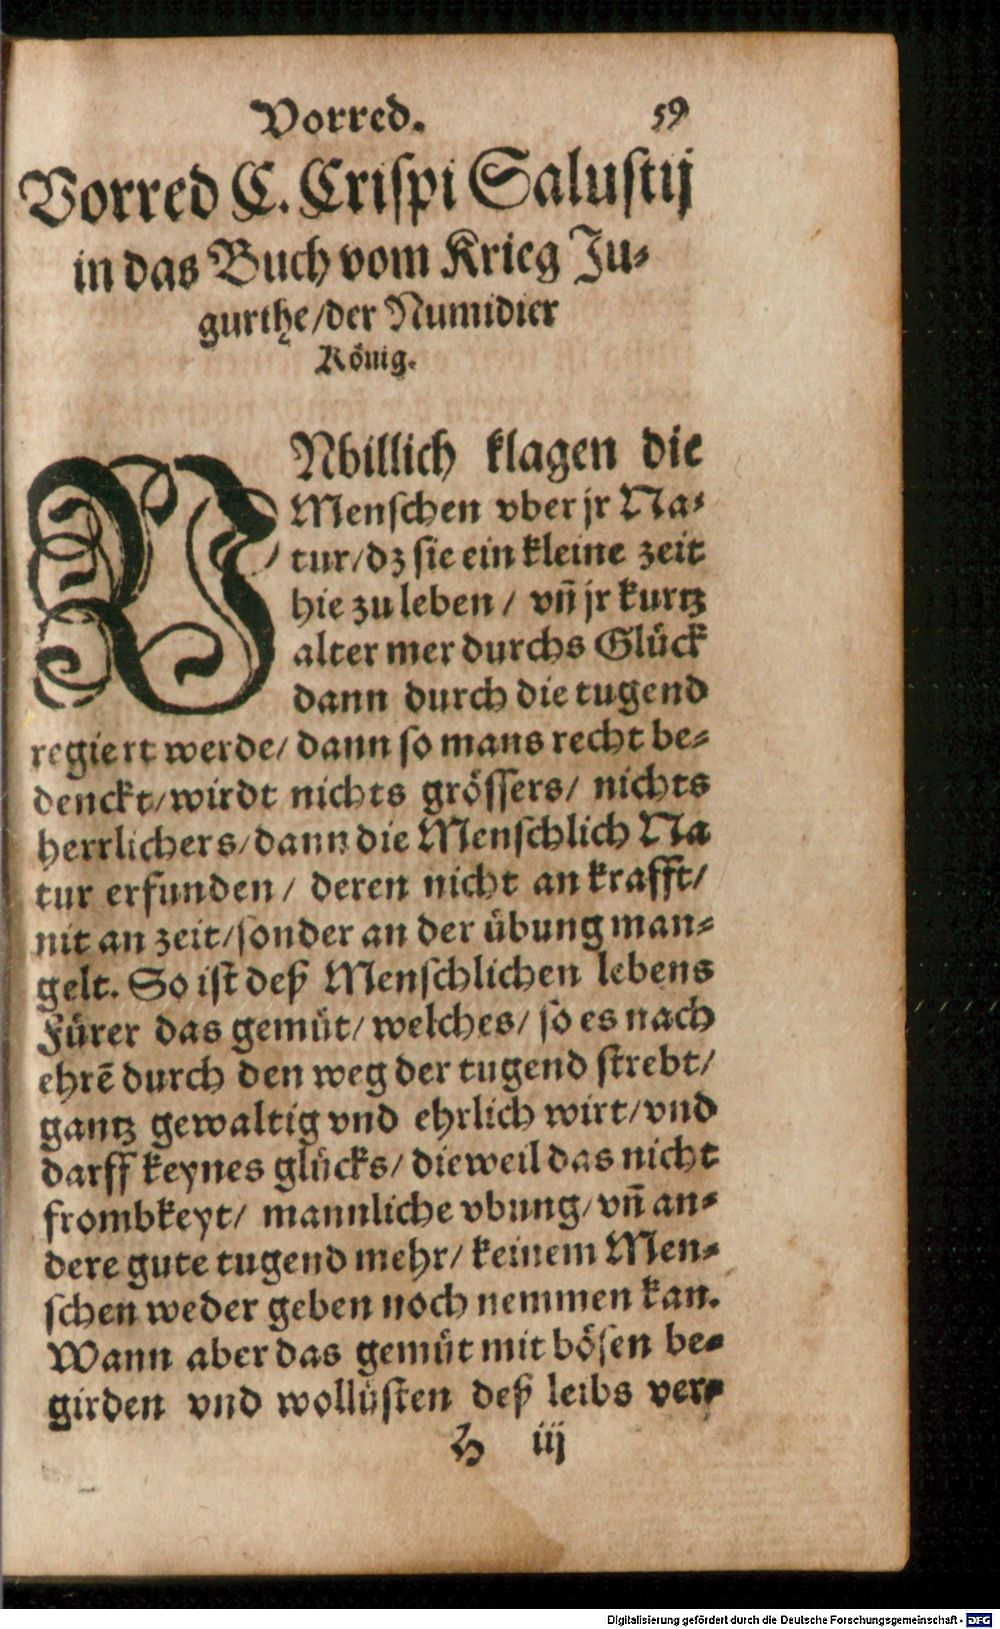 Vorred. 59
Vorred C. Crispi Salustij
in das Buch vom Krieg Ju⸗
gurthe/der Numidier
König.
VNbillich klagen die
Menschen vber jr Na⸗
tur/dz sie ein kleine zeit
hie zu leben / vñ jr kurtz
alter mer durchs Glück
dann durch die tugend
regiert werde/ dann so mans recht be⸗
denckt/wirdt nichts grössers/ nichts
herrlichers/dann die Menschlich Na
tur erfunden/ deren nicht an krafft/
nit an zeit/sonder an der übung man⸗
gelt. So ist deß Menschlichen lebens
Fürer das gemüt/ welches/ so es nach
ehrẽ durch den weg der tugend strebt/
gantz gewaltig vnd ehrlich wirt/vnd
darff keynes glücks/ dieweil das nicht
frombkeyt/ mannliche vbung/ vñ an⸗
dere gute tugend mehr/ keinem Men⸗
schen weder geben noch nemmen kan.
Wann aber das gemüt mit bösen be⸗
girden vnd wollüsten deß leibs ver⸗
H iij
Digitalisierung gefördert durch die Deutsche Forschungsgemeinschaft - DFG